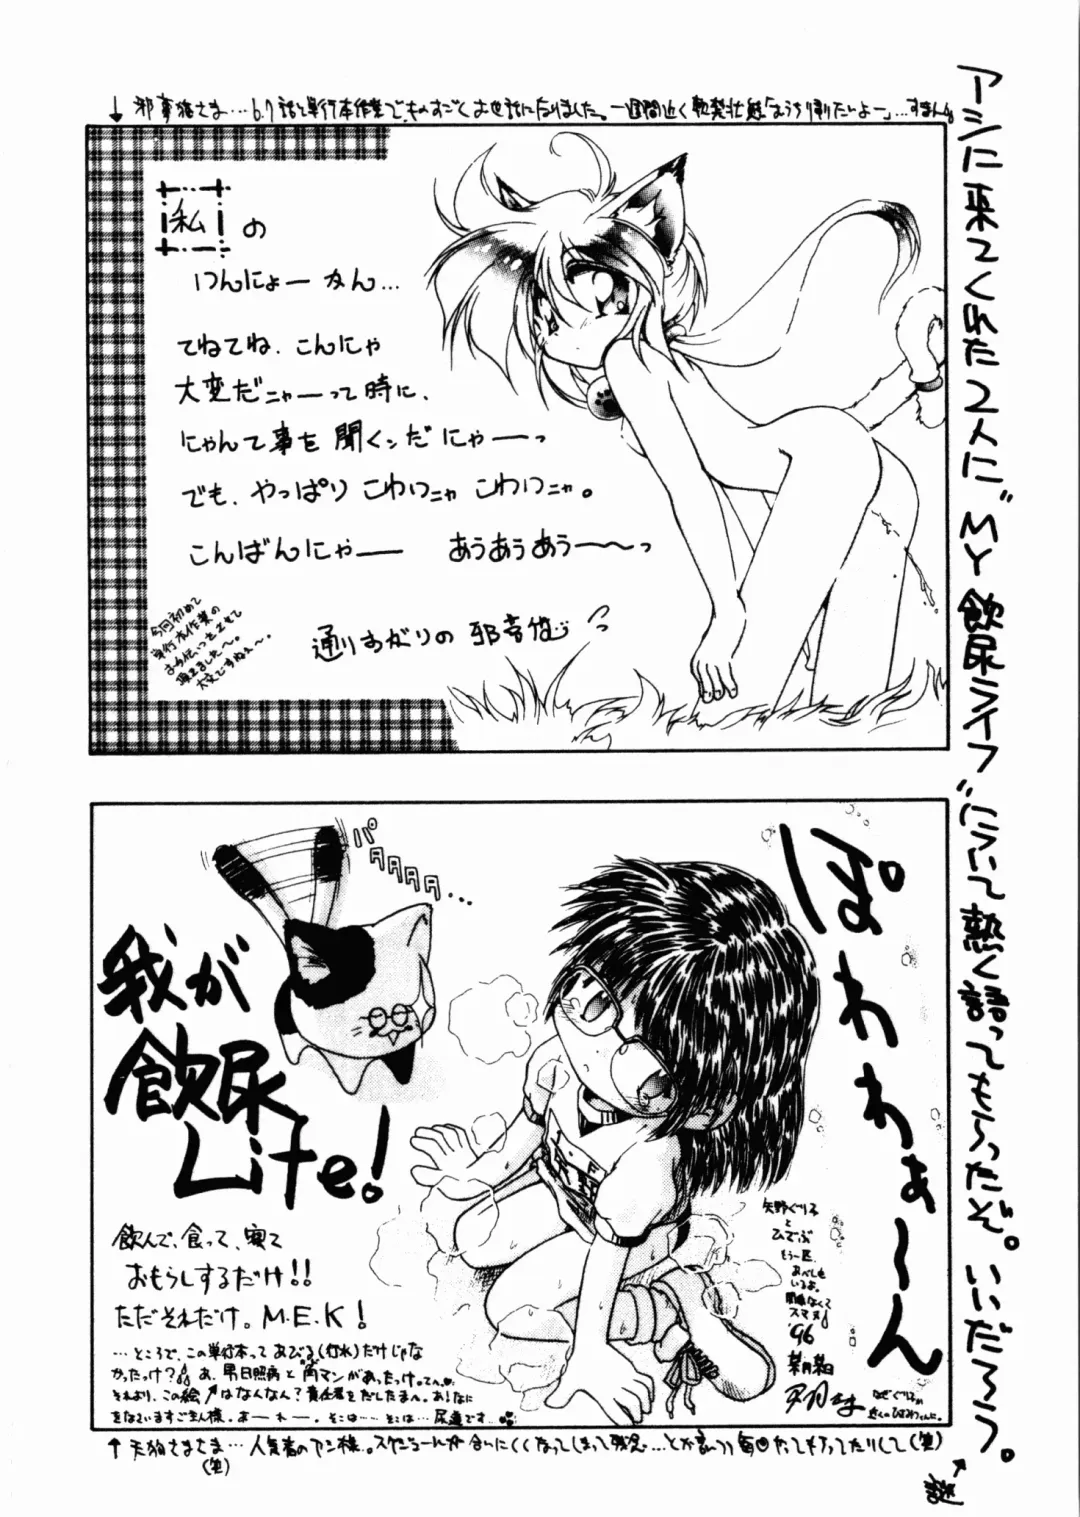 アシに来てくれた2人に"MY飲尿ライフ"について熱く語ってもらったぞ。いいだろう。
謎
↓邪夢猫さま…6.7話と単行本作業でものすごくお世話になりました。一週間近く軟禁状態「おうち帰りたいよー」…すまん
私の
てねてね、こんにゃ
大変だニャーって時に、
にゃんて事を聞くンだにゃーっ
でも、やっぱりこわいニャこわいニャ。
こんばんにゃー あうあうあうー〜っ
今回初めて
単行本作業の
お手伝いをさせて
頂きました〜。
大変ですねぇ〜。
通りすがりの
パタタタタ…
ぽわわわぁ〜ん
我が
飲尿
Life!
飲んで、食って、寝て
おもらしするだけ!!
ただそれだけ。M.E.K!
…ところで、この単行本ってあびる(打水)だけじゃな
かったけ? あ、
それより、この絵↗はなんなん?責任者をだしたまへ。
そこは……そこは…尿道です…
矢野ぐりる
と
ひでぶ
もう一匹、
あべしも
いるよ。
関係なくて
スマヌ!
'96
↑天狗さまさま…人気者のアシ様。スケジュールが合いにくくなってしまって残念…とか言いつつ毎回だってやってたりして(笑)
(笑)